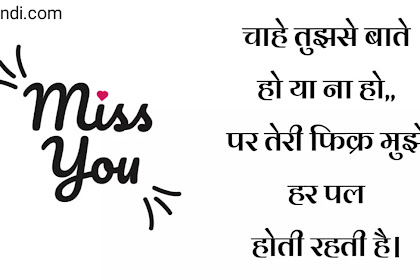 ndi.com
Miss
You
चाहे तुझसे बाते
हो या ना हो,,
पर तेरी फिक्र मुझे
हर पल
होती रहती है।